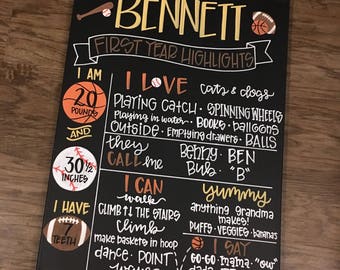 BENNETT
FIRST YEAR HIGHLIGHTS
I AM
20
POUNDS
AND
30 1/2
INCHES
I HAVE
7
TEETH
I LOVE cats & dogs
PLAYING CATCH · SPINNING WHEELS
PLAYING in WATER · BOOKS · balloons
OUTSIDE · EMPTYING DRAWERS · BALLS
they
CALL me
BEN
Bub · "B"
I CAN
walk
CLIMB ↑ THE STAIRS
CLIMB
make baskets in hoop
dance · POINT
yummy
anything grandma
makes!
PUFFS · VEGGIES · bananas
I SAY
GO-GO · MAMA · "OW"